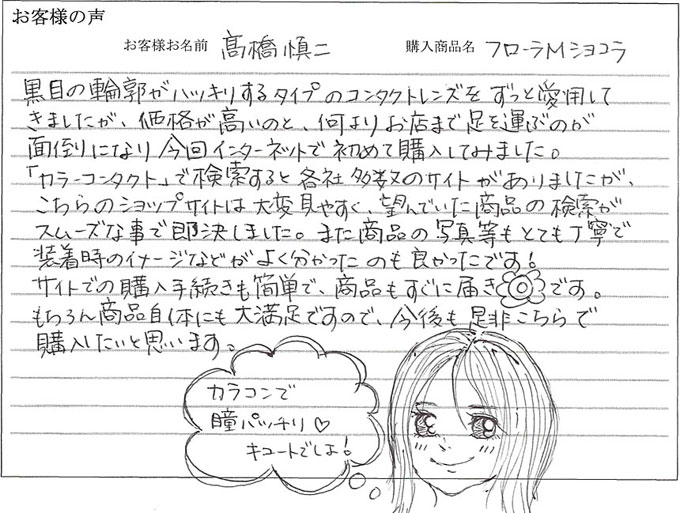 お客様の声
お客様お名前 髙橋慎二 購入商品名 フローラMショコラ
黒目の輪郭がハッキリするタイプのコンタクトレンズをずっと愛用して
きましたが、価格が高いのと、何よりお店まで足を運ぶのが
面倒になり今回インターネットで初めて購入してみました。
「カラーコンタクト」で検索すると各社多数のサイトがありましたが、
こちらのショップサイトは大変見やすく、望んでいた商品の検索が
スムーズな事で即決しました。また商品の写真等もとても丁寧で
装着時のイメージなどがよく分かったのも良かったです!
サイトでの購入手続きも簡単で、商品もすぐに届きです。
もちろん商品自体にも大満足ですので、今後も是非こちらで
購入したいと思います。
カラコンで
瞳パッチリ♡
キュートでしょ!